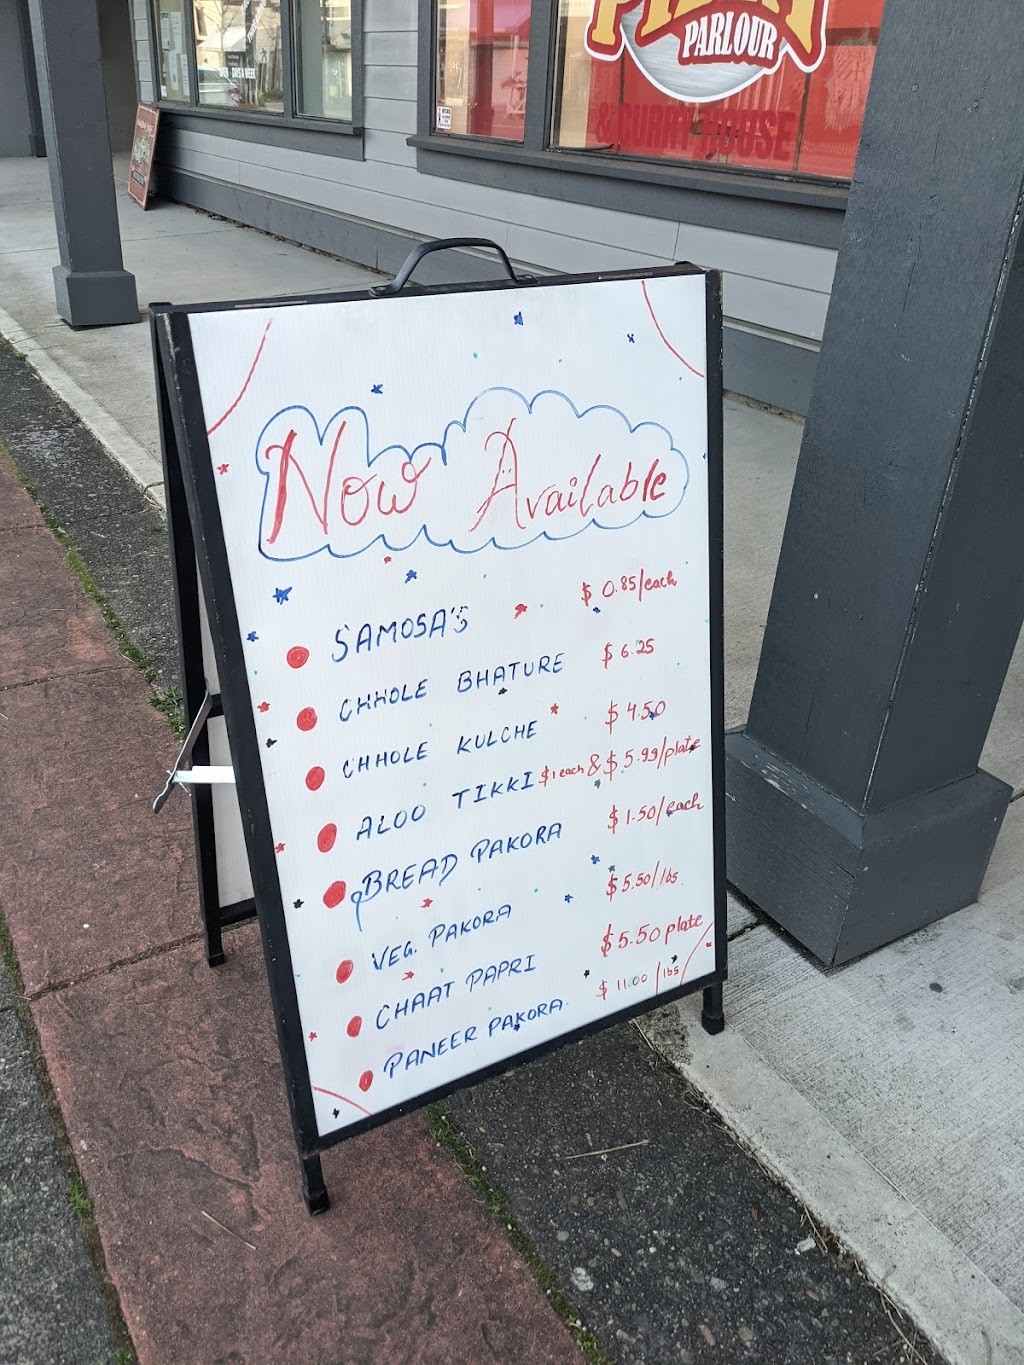 PIZZA
PARLOUR
& CURRY HOUSE
DAYS A WEEK
Now Available
SAMOSA'S $ 0.85/each
CHHOLE BHATURE $ 6.25
CHHOLE KULCHE $ 4.50
ALOO TIKKI $1 each & $ 5.99/plate
BREAD PAKORA $ 1.50/each
VEG. PAKORA $ 5.50/lbs
CHAAT PAPRI $ 5.50 plate
PANEER PAKORA $ 11.00/lbs